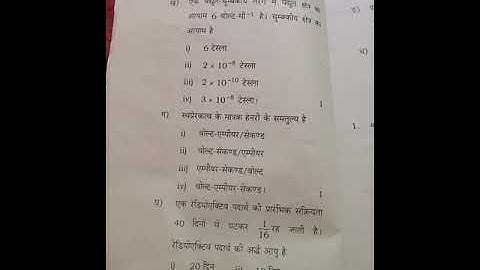 ख) एक विद्युत-चुम्बकीय तरंग में विद्युत क्षेत्र का
आयाम 6 वोल्ट-मी⁻¹ है। चुम्बकीय क्षेत्र का
आयाम है
i) 6 टेस्ला
ii) 2 × 10⁻⁸ टेस्ला
iii) 2 × 10⁻¹⁰ टेस्ला
iv) 3 × 10⁻⁸ टेस्ला। 1
ग) स्वप्रेरकत्व के मात्रक हेनरी के समतुल्य है
i) वोल्ट-एम्पीयर/सेकण्ड
ii) वोल्ट-सेकण्ड/एम्पीयर
iii) एम्पीयर-सेकण्ड/वोल्ट
iv) वोल्ट-एम्पीयर-सेकण्ड। 1
घ) एक रेडियोएक्टिव पदार्थ की प्रारंभिक सक्रियता
40 दिनों में घटकर 1/16 रह जाती है।
रेडियोएक्टिव पदार्थ की अर्द्ध आयु है
i) 20 दिन ii) 10 दिन
1.